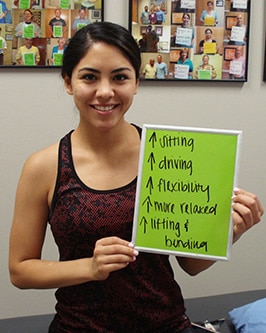 ↑ sitting
↑ driving
↑ flexibility
↑ more relaxed
↑ lifting &
bending